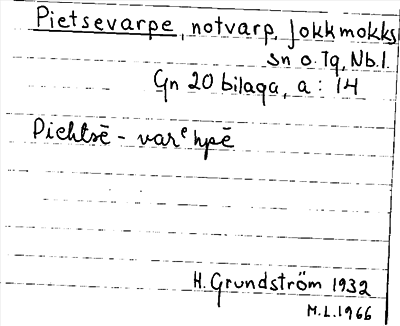 Pietsevarpe, notvarp, Jokkmokks
sn o. Tg, Nb.l.
Gn 20 bilaga, a: 14
Piehtsē - varᵉhpē
H. Grundström 1932
M.L. 1966